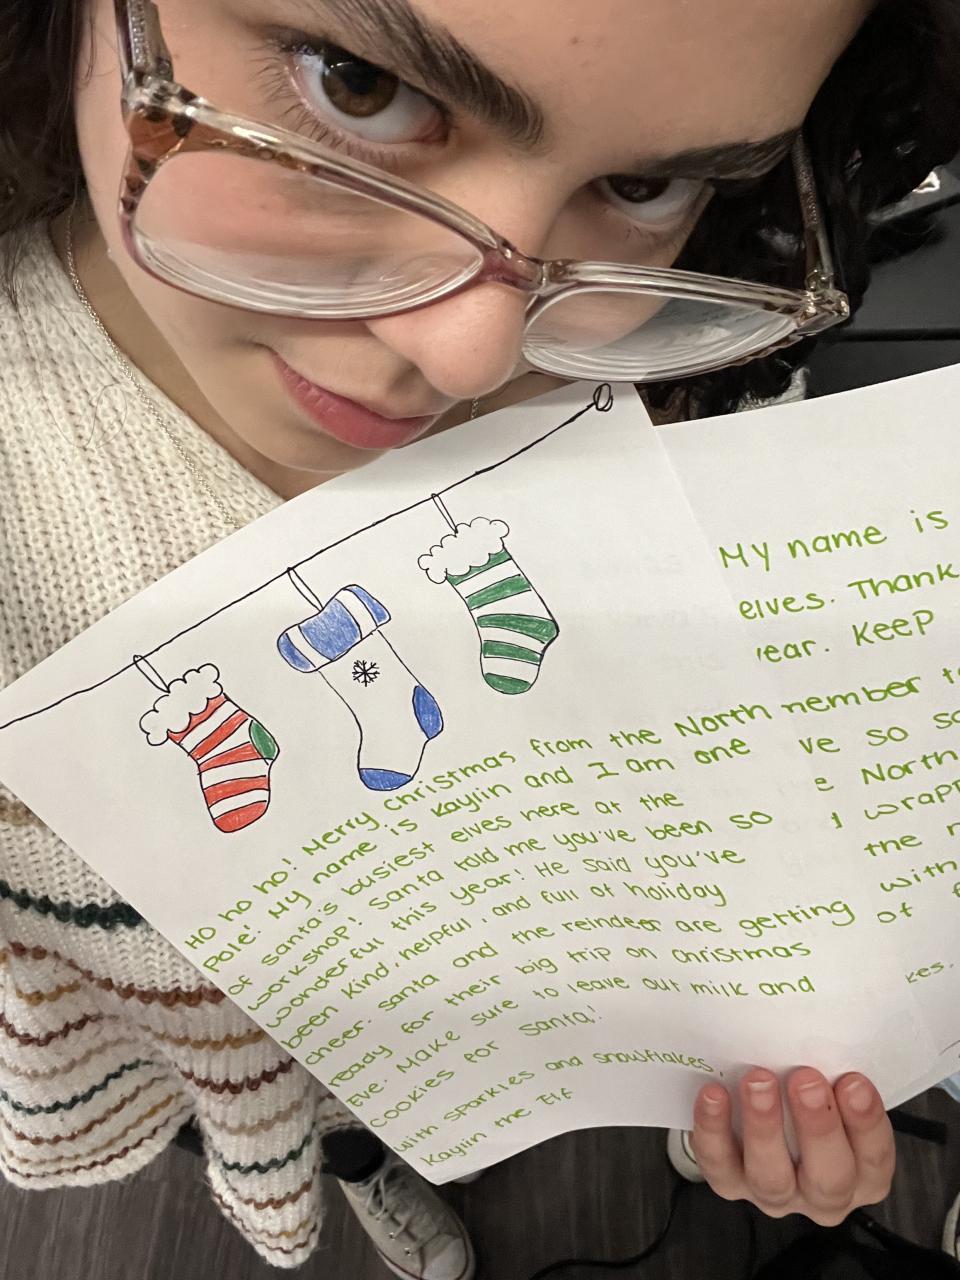 Ho ho ho! Merry Christmas from the North
Pole! My name is Kayiin and I am one
of santa's busiest elves here at the
workshop! Santa told me you've been so
wonderful this year! He said you've
been kind, helpful, and full of holiday
cheer. Santa and the reindeer are getting
ready for their big trip on christmas
Eve. Make sure to leave out milk and
cookies for Santa!
with sparkles and snowflakes,
Kayiin the Elf
My name is
elves. Thank
ear. Keep
nember to
ve so
e North
wrapp
the
with
of
kes.